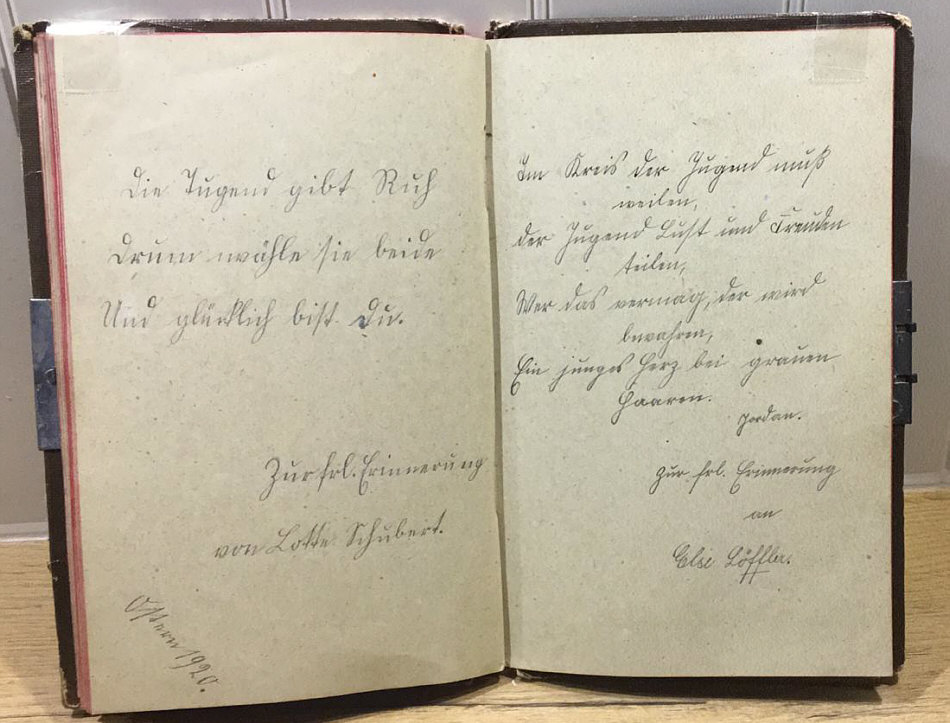 Die Tugend gibt Ruh
Drum wähle sie beide
Und glücklich bist du.
Zur frl. Erinnerung
von Lotte Schubert.
Ostern 1920.
Im Kreis der Jugend muß
weilen,
der Jugend Lust und Freuden
teilen,
Wer das vermag, der wird
bewahren,
Ein junges Herz bei grauen
Haaren.
Jordan.
Zur frl. Erinnerung
an
Else Löffler.